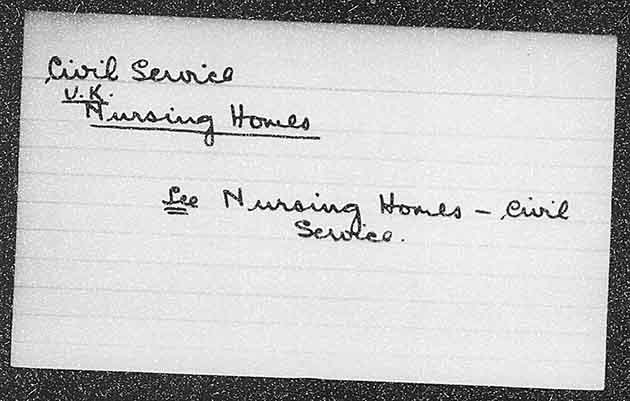 Civil Service
U.K.
Nursing Homes
See Nursing Homes - Civil
Service.